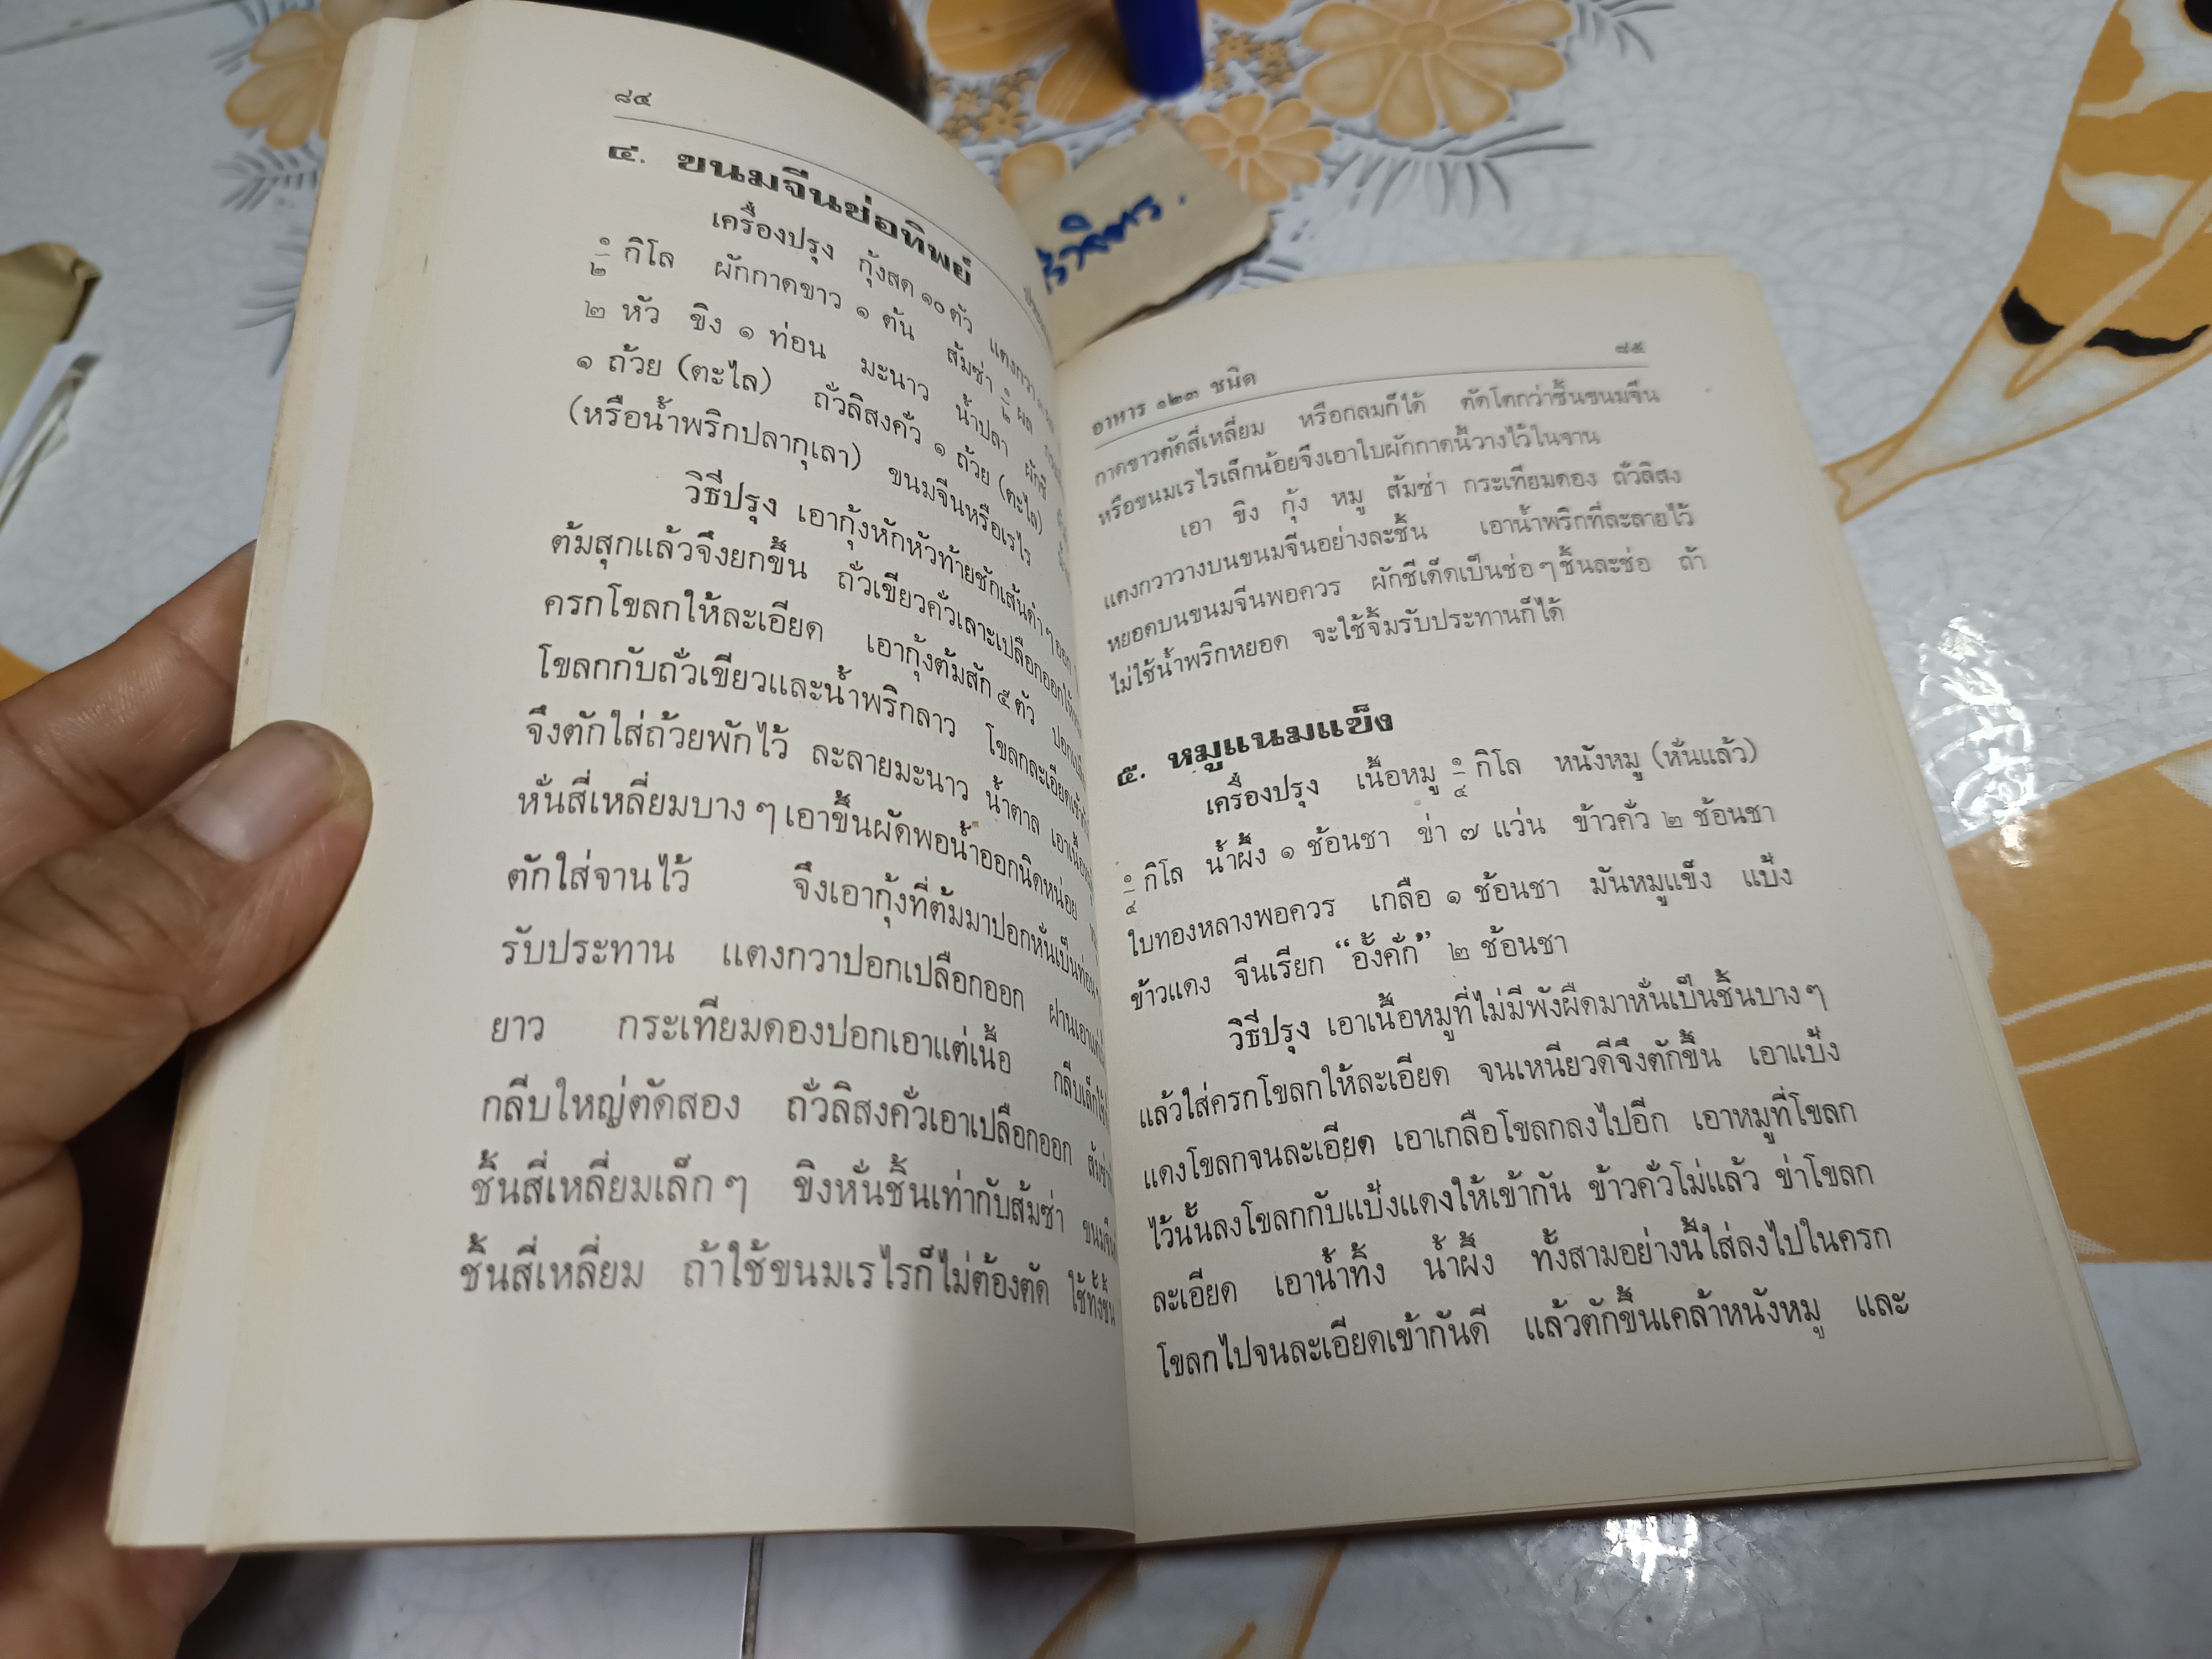 ๘๔
๔. ขนมจีนช่อทิพย์
เครื่องปรุง กุ้งสด ๑๐ ตัว แตงกวา
๑/๒ กิโล ผักกาดขาว ๑ ต้น ส้มซ่า ๑/๒ ผล
๒ หัว ขิง ๑ ท่อน มะนาว น้ำปลา ผักชี
๑ ถ้วย (ตะไล) ถั่วลิสงคั่ว ๑ ถ้วย (ตะไล)
(หรือน้ำพริกปลากุเลา) ขนมจีนหรือเรไร
วิธีปรุง เอากุ้งหักหัวท้ายชักเส้นดำๆ ออก
ต้มสุกแล้วจึงยกขึ้น ถั่วเขียวคั่วเลาะเปลือกออกให้
ครกโขลกให้ละเอียด เอากุ้งต้มสัก ๕ ตัว
โขลกกับถั่วเขียวและน้ำพริกลาว โขลกละเอียด
จึงตักใส่ถ้วยพักไว้ ละลายมะนาว น้ำตาล
หั่นสี่เหลี่ยมบางๆ เอาขึ้นผัดพอน้ำออกนิดหน่อย
ตักใส่จานไว้ จึงเอากุ้งที่ต้มมาปอกหั่นเป็นท่อนๆ
รับประทาน แตงกวาปอกเปลือกออก ฝานเอา
ยาว กระเทียมดองปอกเอาแต่เนื้อ กลีบเล็ก
กลีบใหญ่ตัดสอง ถั่วลิสงคั่วเอาเปลือกออก ส้มซ่า
ชิ้นสี่เหลี่ยมเล็กๆ ขิงหั่นชิ้นเท่ากับส้มซ่า ขนมจีน
ชิ้นสี่เหลี่ยม ถ้าใช้ขนมเรไรก็ไม่ต้องตัด ใช้ทั้งชิ้น
วิจิตร.
อาหาร ๑๒๓ ชนิด ๘๕
กาดขาวตัดสี่เหลี่ยม หรือกลมก็ได้ ตัดโตกว่าชิ้นขนมจีน
หรือขนมเรไรเล็กน้อยจึงเอาใบผักกาดนี้วางไว้ในจาน
เอา ขิง กุ้ง หมู ส้มซ่า กระเทียมดอง ถั่วลิสง
แตงกวาวางบนขนมจีนอย่างละชิ้น เอาน้ำพริกที่ละลายไว้
หยอดบนขนมจีนพอควร ผักชีเด็ดเป็นช่อๆ ชิ้นละช่อ ถ้า
ไม่ใช้น้ำพริกหยอด จะใช้จิ้มรับประทานก็ได้
๕. หมูแนมแข็ง
เครื่องปรุง เนื้อหมู ๑/๔ กิโล หนังหมู (หั่นแล้ว)
๑/๔ กิโล น้ำผึ้ง ๑ ช้อนชา ข่า ๗ แว่น ข้าวคั่ว ๒ ช้อนชา
ใบทองหลางพอควร เกลือ ๑ ช้อนชา มันหมูแข็ง แป้ง
ข้าวแดง จีนเรียก “อั้งคั่ก” ๒ ช้อนชา
วิธีปรุง เอาเนื้อหมูที่ไม่มีพังผืดมาหั่นเป็นชิ้นบางๆ
แล้วใส่ครกโขลกให้ละเอียด จนเหนียวดีจึงตักขึ้น เอาแป้ง
แดงโขลกจนละเอียด เอาเกลือโขลกลงไปอีก เอาหมูที่โขลก
ไว้นั้นลงโขลกกับแป้งแดงให้เข้ากัน ข้าวคั่วโม่แล้ว ข่าโขลก
ละเอียด เอาน้ำทิ้ง น้ำผึ้ง ทั้งสามอย่างนี้ใส่ลงไปในครก
โขลกไปจนละเอียดเข้ากันดี แล้วตักขึ้นเคล้าหนังหมู และ